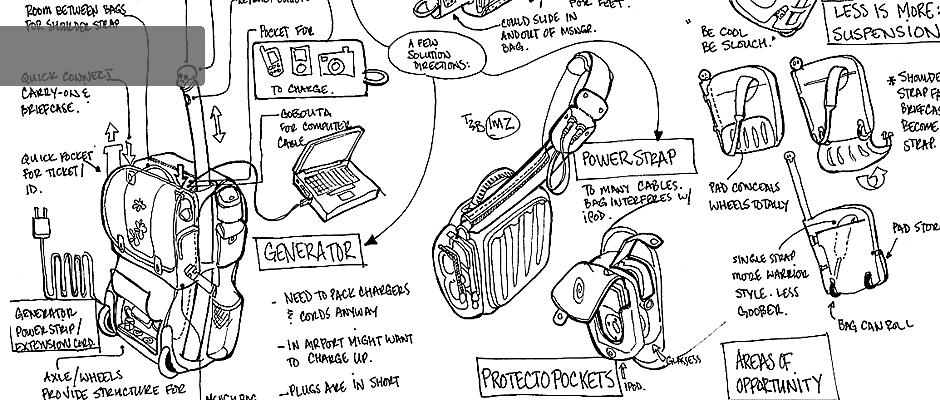 ROOM BETWEEN BAGS
FOR SHOULDER STRAP
QUICK CONNECT
CARRY-ON &
BRIEFCASE.
QUICK POCKET
FOR TICKET/
ID.
GENERATOR
POWER STRIP/
EXTENSION CORD.
AXLE/WHEELS
PROVIDE STRUCTURE FOR
POCKET FOR
TO CHARGE.
FOR COMPUTER
CABLE.
GENERATOR
- NEED TO PACK CHARGERS
& CORDS ANYWAY
- IN AIRPORT MIGHT WANT
TO CHARGE UP.
- PLUGS ARE IN SHORT
A FEW
SOLUTION
DIRECTIONS:
FOR FEET.
COULD SLIDE IN
AND OUT OF MSNGR.
BAG.
POWER STRAP
TO MANY CABLES.
BAG INTERFERES W/
iPOD.
PROTECTO POCKETS
iPOD.
GLASSES
"BE COOL
BE SLOUCH."
LESS IS MORE:
SUSPENSION
PAD CONCEALS
WHEELS TOTALLY
STRAP
BECOME
STRAP.
SINGLE STRAP
MORE WARRIOR
STYLE. LESS
GOOBER.
PAD STOR
BAG CAN ROLL
AREAS OF
OPPORTUNITY